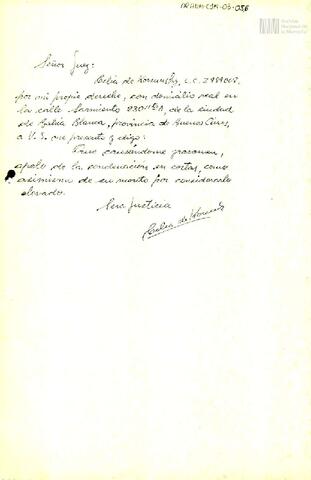 AR-ANM-CJM-03-056
Archivo
Nacional de
la Memoria
Señor Juez:
Celia de Korsunsky, L.C.
por mi propio derecho, con domicilio real en
la calle Sarmiento 230 de la ciudad
de Bahía Blanca, provincia de Buenos Aires,
a V. S. me presento y digo:
Que causándome gravamen,
apelo de la condenación en costas, como
asimismo de su monto por considerarlo
elevado.
Será Justicia
Celia de